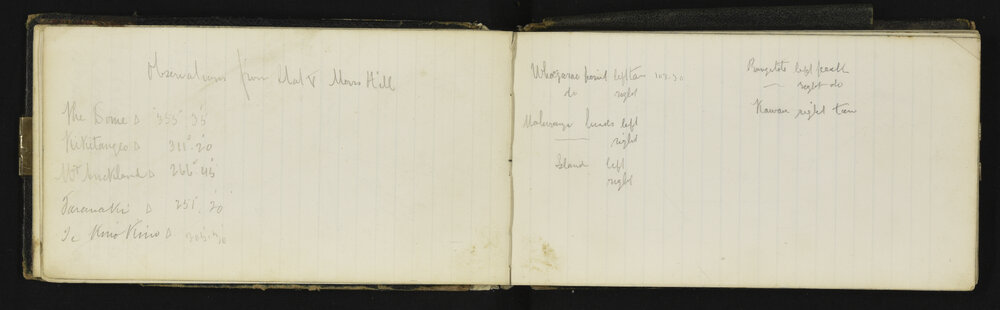 Observations from Hill
The Dome △ 355° 35'
Kikitangeo △ 311° 20'
Mt Auckland △ 266° 45'
Taranaki △ 251° 20'
Te Kino Kino △
Whagarae point left tan 102.30
do right
Mahurangi heads left
right
Island left
right
Rangitoto left peak
right do
Kawau right tan